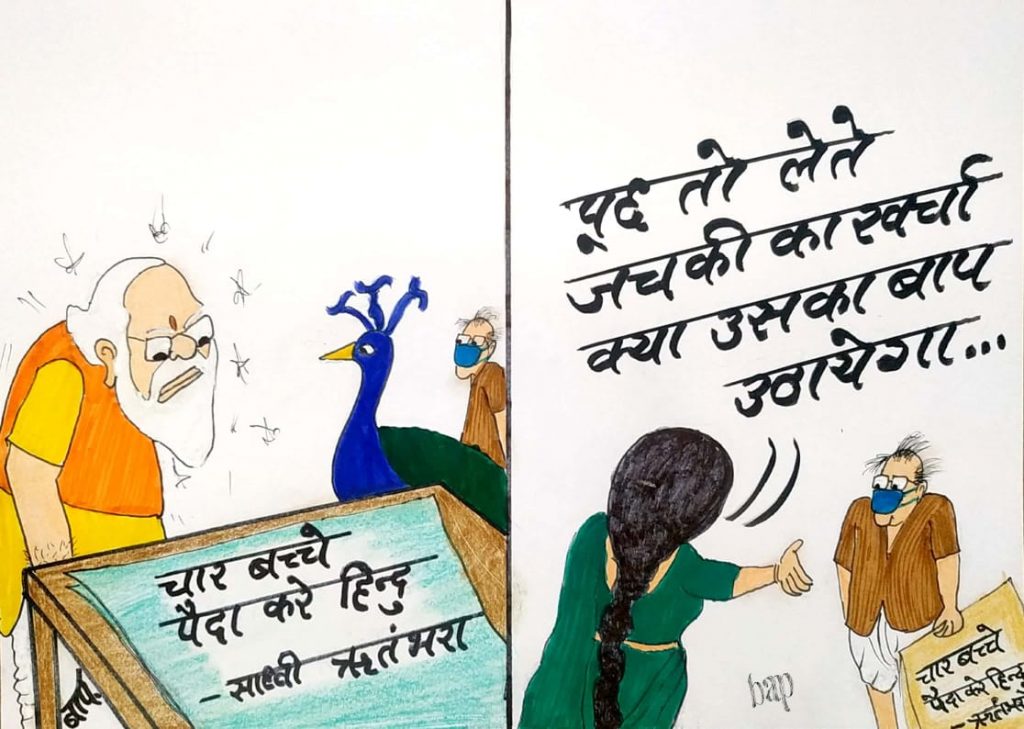 चार बच्चे
पैदा करे हिन्दु
- साध्वी ऋतंभरा
पूछ तो लेते
जचकी का खर्चा
क्या उसका बाप
उठायेगा...
bap
चार बच्चे
पैदा करे हिन्दु